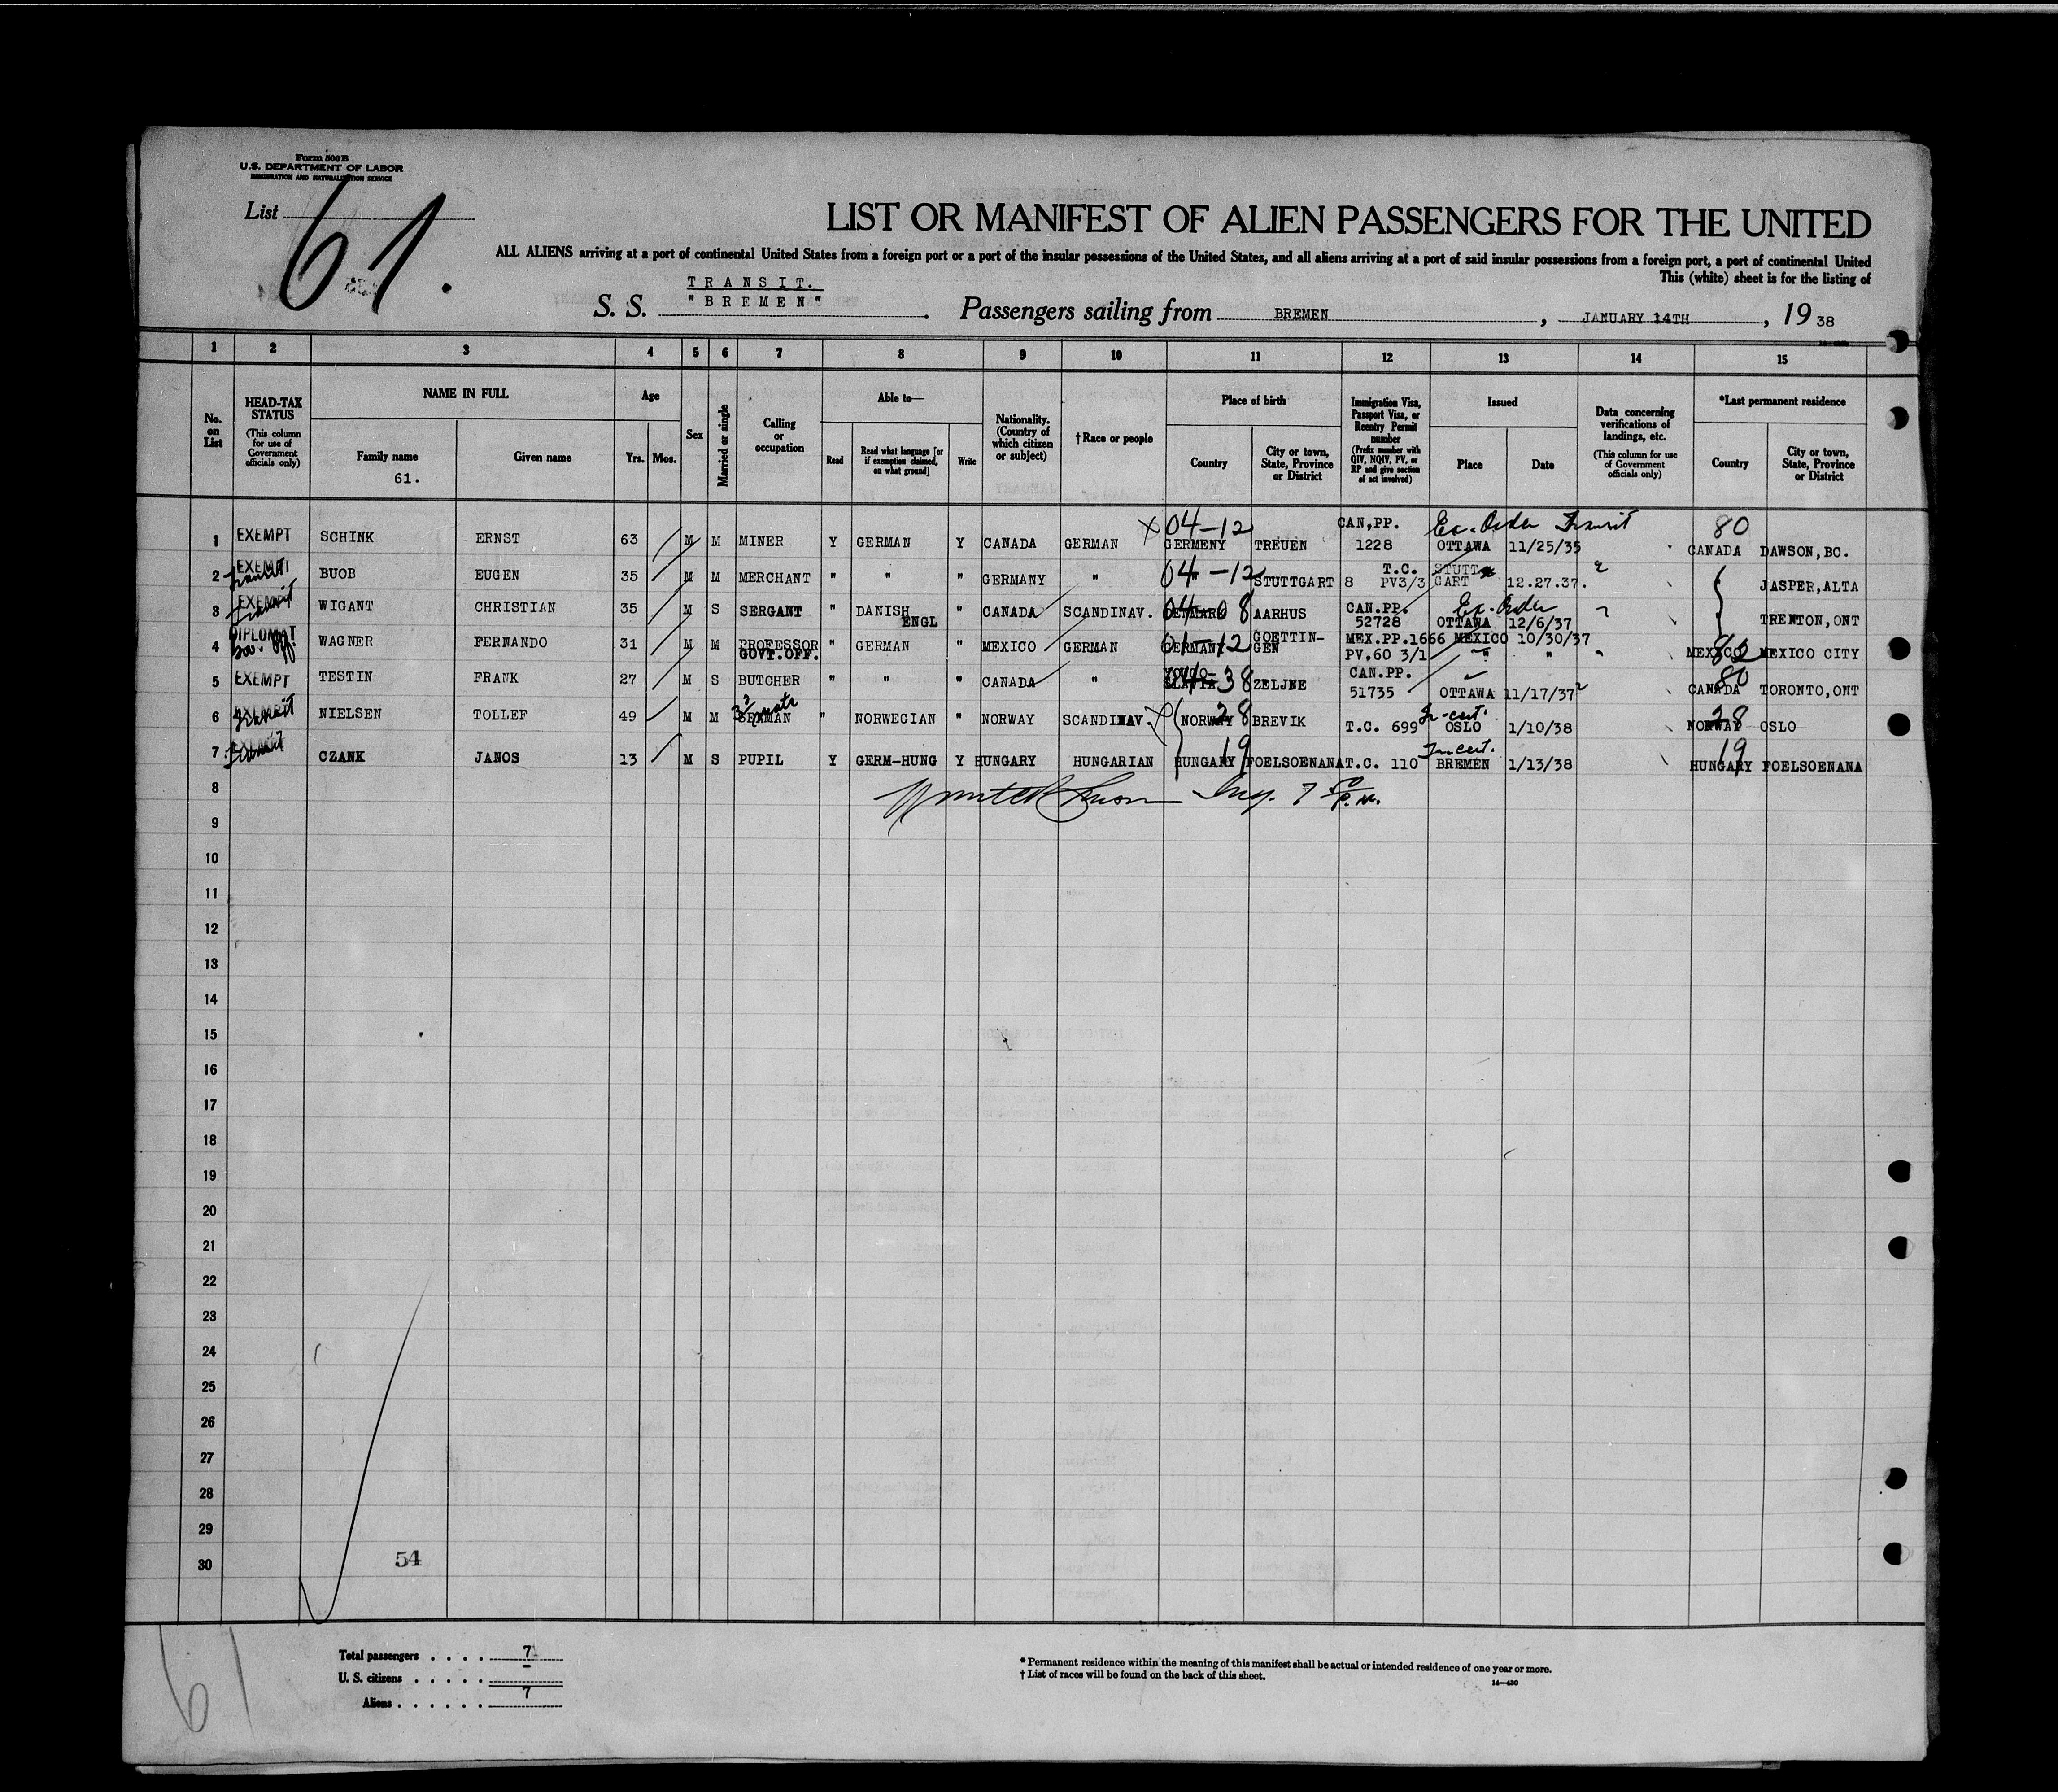 Form 500 B
U.S. DEPARTMENT OF LABOR
IMMIGRATION AND NATURALIZATION SERVICE
List 61.
LIST OR MANIFEST OF ALIEN PASSENGERS FOR THE UNITED
ALL ALIENS arriving at a port of continental United States from a foreign port or a port of the insular possessions of the United States, and all aliens arriving at a port of said insular possessions from a foreign port, a port of continental United
This (white) sheet is for the listing of
TRANSIT.
S. S. "BREMEN". Passengers sailing from BREMEN, JANUARY 14TH, 19 38
1 2 3 4 5 6 7 8 9 10 11 12 13 14 15
No. on List
HEAD-TAX STATUS
(This column for use of Government officials only)
NAME IN FULL
Family name
61.
Given name
Age
Yrs. Mos.
Sex
Married or single
Calling or occupation
Able to—
Read
Read what language [or if exemption claimed, on what ground]
Write
Nationality. (Country of which citizen or subject)
†Race or people
Place of birth
Country
City or town, State, Province or District
Immigration Visa, Passport Visa, or Reentry Permit number
(Prefix number with QIV, NQIV, PV, or RP and give section of act involved)
Issued
Place
Date
Data concerning verifications of landings, etc.
(This column for use of Government officials only)
*Last permanent residence
Country
City or town, State, Province or District
X 04-12 CAN,PP. Ex. Order Transit 80
1 EXEMPT SCHINK ERNST 63 M M MINER Y GERMAN Y CANADA GERMAN GERMENY TREUEN 1228 OTTAWA 11/25/35 CANADA DAWSON,BC.
04-12 T.C. STUTT
2 EXEMPT transit BUOB EUGEN 35 M M MERCHANT " " " GERMANY " " STUTTGART 8 PV3/3 GART 12.27.37. JASPER,ALTA
3 EXEMPT transit WIGANT CHRISTIAN 35 M S SERGANT " DANISH ENGL " CANADA SCANDINAV. DENMARK 04-08 AARHUS CAN.PP. 52728 Ex. Order OTTAWA 12/6/37 TRENTON,ONT
4 DIPLOMAT Gov. Off. WAGNER FERNANDO 31 M M PROFESSOR GOVT.OFF. " GERMAN " MEXICO GERMAN GERMANY 01-12 GOETTIN-GEN MEX.PP.1666 MEXICO 10/30/37
PV.60 3/1 " " MEXICO 82 MEXICO CITY
5 EXEMPT TESTIN FRANK 27 M S BUTCHER " " " CANADA " YOUGO-SLAVIA 04-38 ZELJNE CAN.PP. 51735 OTTAWA 11/17/37 80 CANADA TORONTO,ONT
6 EXEMPT transit NIELSEN TOLLEF 49 M M SEAMAN " NORWEGIAN " NORWAY SCANDINAV. NORWAY 28 BREVIK T.C. 699 Tr-cert. OSLO 1/10/38 NORWAY 28 OSLO
7 EXEMPT transit CZANK JANOS 13 M S PUPIL Y GERM-HUNG Y HUNGARY HUNGARIAN HUNGARY 19 FOELSOENANA T.C. 110 Tr cert. BREMEN 1/13/38 HUNGARY 19 FOELSOENANA
8
9
10
11
12
13
14
15
16
17
18
19
20
21
22
23
24
25
26
27
28
29
30
54
61
Total passengers . . . . 7
U. S. citizens . . . . . -
Aliens . . . . . . 7
* Permanent residence within the meaning of this manifest shall be actual or intended residence of one year or more.
† List of races will be found on the back of this sheet.
14—430